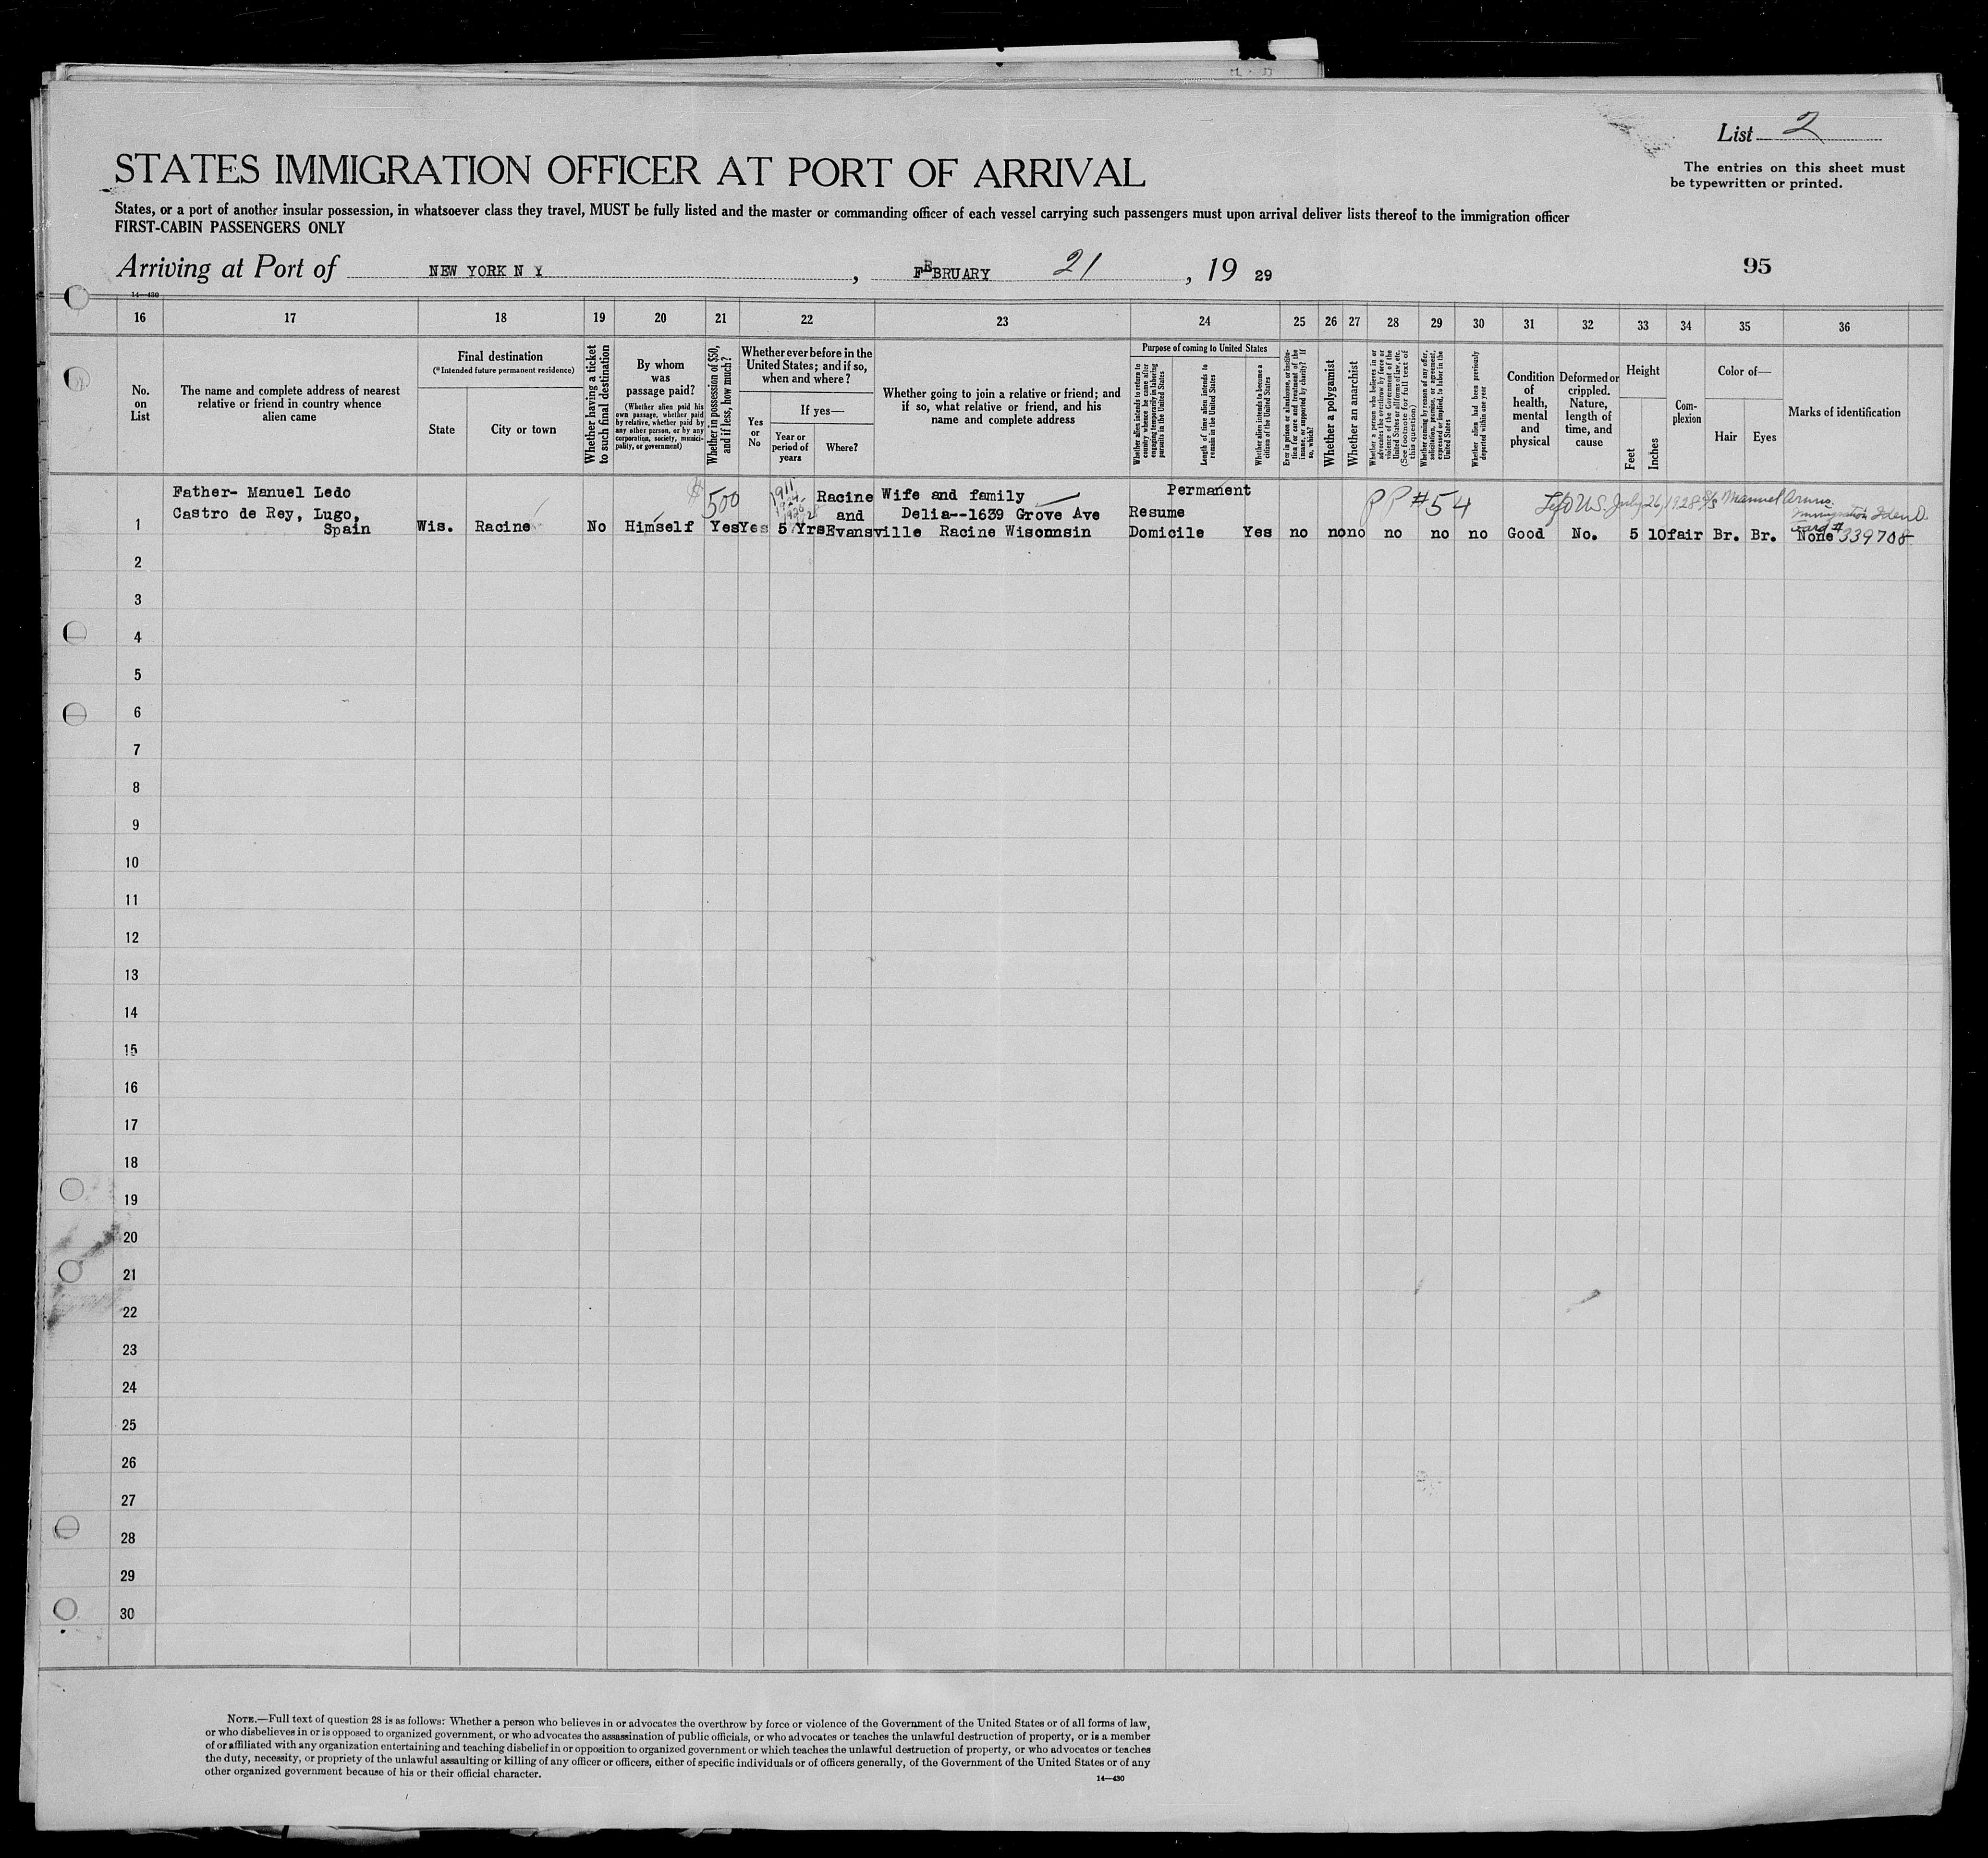 List 2
The entries on this sheet must
be typewritten or printed.
STATES IMMIGRATION OFFICER AT PORT OF ARRIVAL
States, or a port of another insular possession, in whatsoever class they travel, MUST be fully listed and the master or commanding officer of each vessel carrying such passengers must upon arrival deliver lists thereof to the immigration officer
FIRST-CABIN PASSENGERS ONLY
Arriving at Port of NEW YORK N Y, FEBRUARY 21, 19 29
95
14—430
16 17 18 19 20 21 22 23 24 25 26 27 28 29 30 31 32 33 34 35 36
No.
on
List
The name and complete address of nearest
relative or friend in country whence
alien came
Final destination
(*Intended future permanent residence)
State
City or town
Whether having a ticket
to such final destination
By whom
was
passage paid?
(Whether alien paid his
own passage, whether paid
by relative, whether paid by
any other person, or by any
corporation, society, munici-
pality, or government)
Whether in possession of $50,
and if less, how much?
Whether ever before in the
United States; and if so,
when and where?
Yes
or
No
If yes—
Year or
period of
years
Where?
Whether going to join a relative or friend; and
if so, what relative or friend, and his
name and complete address
Purpose of coming to United States
Whether alien intends to return to
country whence he came after
engaging temporarily in laboring
pursuits in the United States
Length of time alien intends to
remain in the United States
Whether alien intends to become a
citizen of the United States
Ever in prison or almshouse, or institu-
tion for care and treatment of the
insane, or supported by charity? If
so, which?
Whether a polygamist
Whether an anarchist
Whether a person who believes in or
advocates the overthrow by force or
violence of the Government of the
United States or all forms of law, etc.
(See footnote for full text of
this question)
Whether coming by reason of any offer,
solicitation, promise, or agreement,
expressed or implied, to labor in the
United States
Whether alien had been previously
deported within one year
Condition
of
health,
mental
and
physical
Deformed or
crippled.
Nature,
length of
time, and
cause
Height
Feet
Inches
Com-
plexion
Color of—
Hair
Eyes
Marks of identification
Father- Manuel Ledo
Castro de Rey, Lugo,
Spain
1
Wis.
Racine
No
Himself
$500
Yes
Yes
1911
5 Yrs
Racine
and
Evansville
Wife and family
Delia--1639 Grove Ave
Racine Wisonnsin
Permanent
Resume
Domicile
Yes
no
no
no
no
no
no
PP #54
Left U.S. July 26, 1928 S/S Manuel Arnus
Immigration Iden D.
Card #
339708
Good
No.
5
10
fair
Br.
Br.
None
2
3
4
5
6
7
8
9
10
11
12
13
14
15
16
17
18
19
20
21
22
23
24
25
26
27
28
29
30
NOTE.—Full text of question 28 is as follows: Whether a person who believes in or advocates the overthrow by force or violence of the Government of the United States or of all forms of law,
or who disbelieves in or is opposed to organized government, or who advocates the assassination of public officials, or who advocates or teaches the unlawful destruction of property, or is a member
of or affiliated with any organization entertaining and teaching disbelief in or opposition to organized government or which teaches the unlawful destruction of property, or who advocates or teaches
the duty, necessity, or propriety of the unlawful assaulting or killing of any officer or officers, either of specific individuals or of officers generally, of the Government of the United States or of any
other organized government because of his or their official character.
14—430